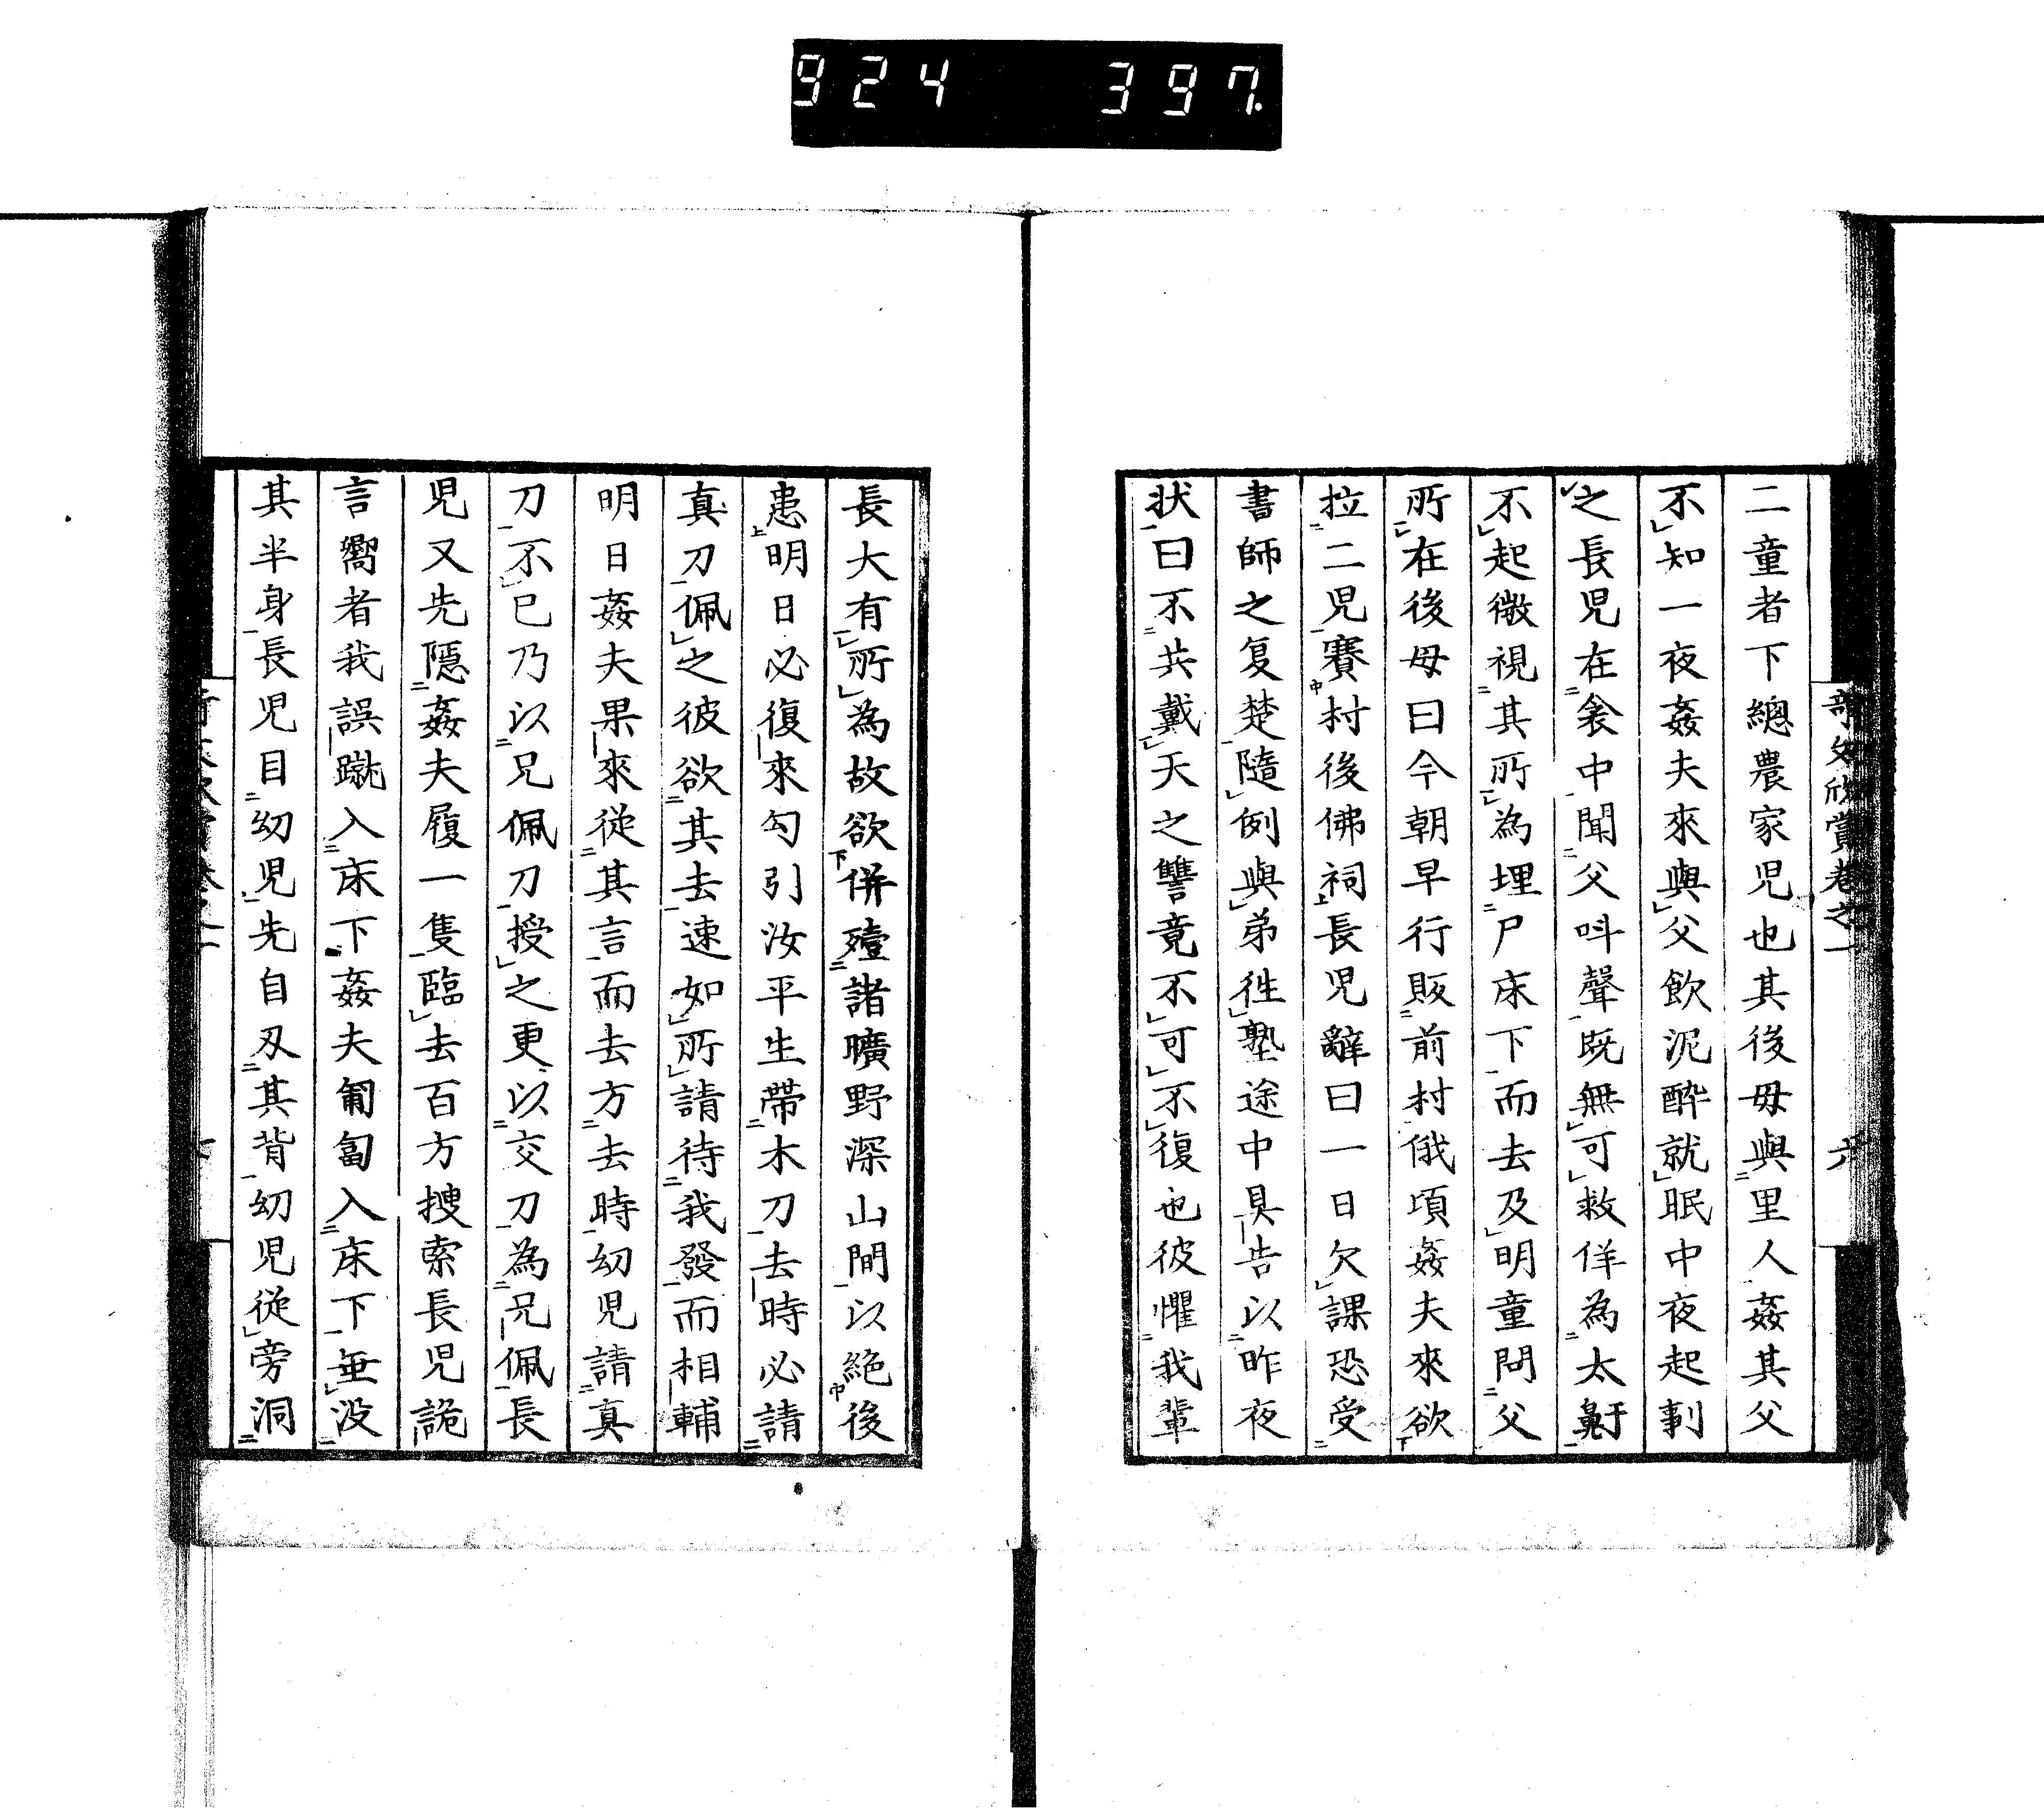 924 397.
奇文欣賞卷之一 六
二童者下總農家児也其後母與里人姦其父
不知一夜姦夫來與父飲泥醉就眠中夜起剚
之長児在衾中聞父呌聲既無可救佯為太鼾
不起微視其所為埋尸床下而去及明童問父
所在後母曰今朝早行販前村俄頃姦夫來欲
拉二児賽村後佛祠長児辭曰一日欠課恐受
書師之夏楚隨例與弟徃塾途中具告以昨夜
狀曰不共戴天之讐竟不可不復也彼懼我輩
長大有所為故欲併殪諸曠野深山間以絶後
患明日必復來勾引汝平生帶木刀去時必請
真刀佩之彼欲其去速如所請待我發而相輔
明日姦夫果來從其言而去方去時幼児請真
刀不已乃以兄佩刀授之更以交刀為兄佩長
児又先隱姦夫履一隻臨去百方搜索長児詭
言嚮者我誤蹴入床下姦夫匍匐入床下垂没
其半身長児目幼児先自刃其背幼児從旁洞